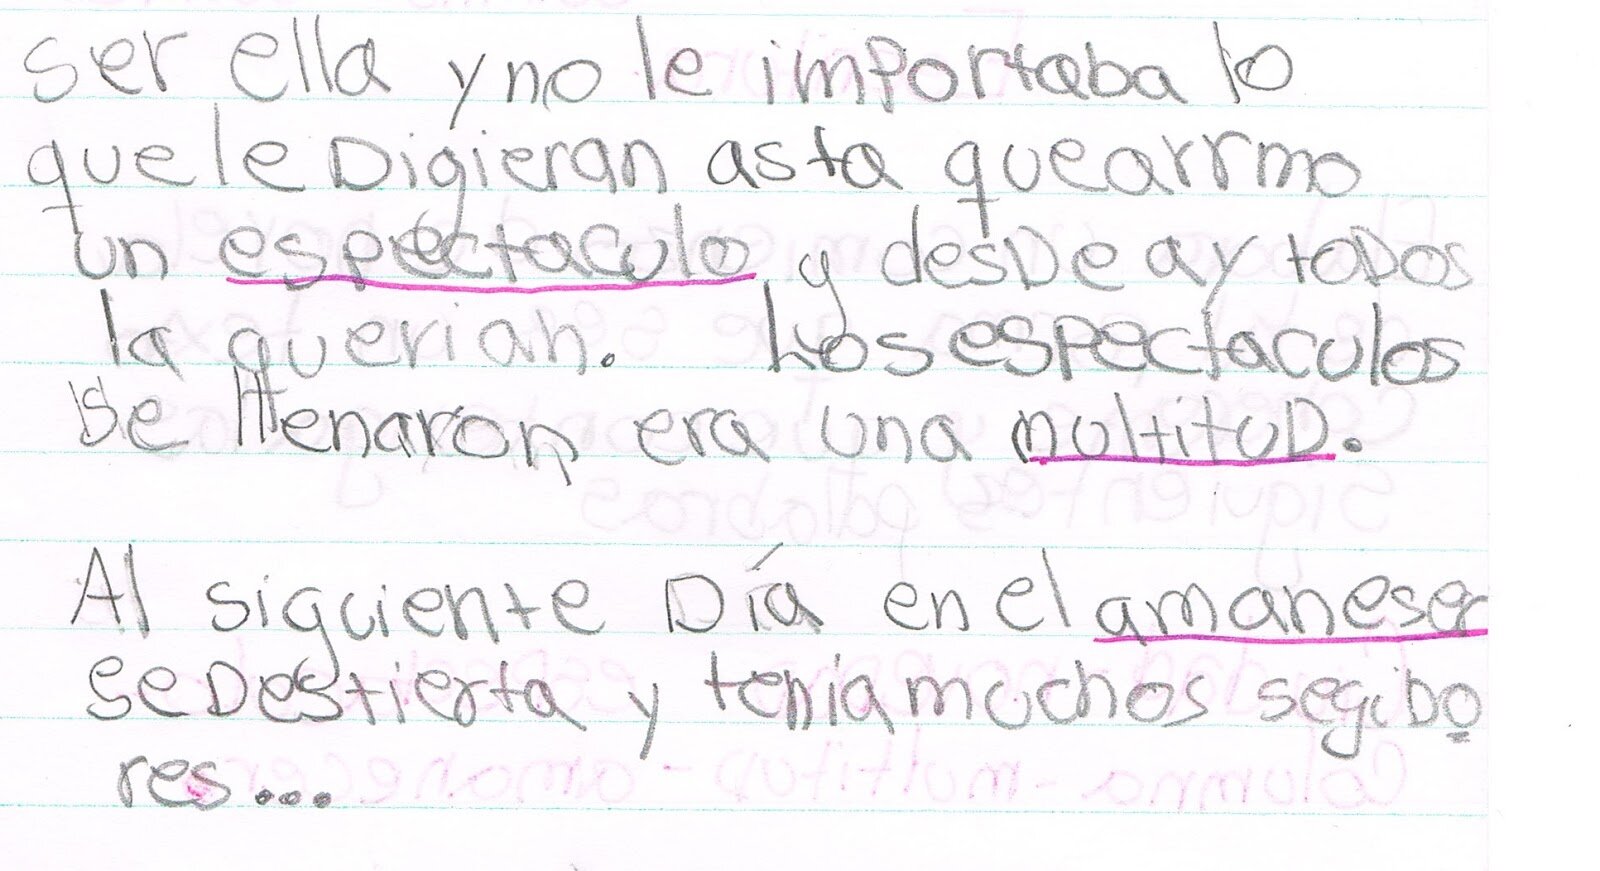 ser ella y no le importaba lo
que le Digieran asta que arrmo
un espectaculo y desde ay toDos
la querian. Los espectaculos
se llenaron era una multituD.
Al siguiente Día en el amaneser
se Destierta y tenia muchos segido
res...